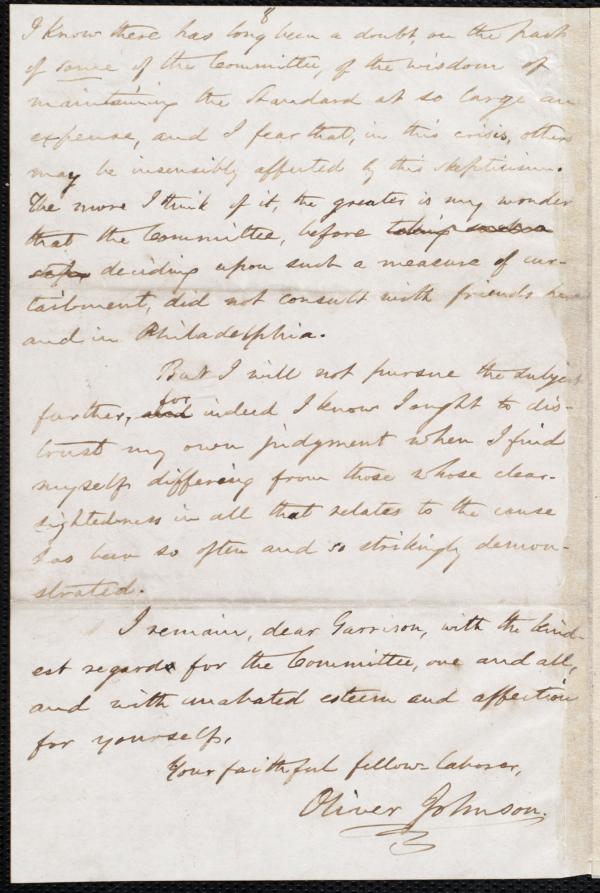 8
I know there has long been a doubt, on the part
of some of the Committee, of the wisdom of
maintaining the Standard at so large an
expense, and I fear that, in this crisis, others
may be insensibly affected by this skepticism.
The more I think of it, the greater is my wonder
that the Committee, before taking such a
step deciding upon such a measure of cur-
tailment, did not consult with friends here
and in Philadelphia.
But I will not pursue the subject
for
further, and indeed I know I ought to dis-
trust my own judgment when I find
myself differing from those whose clear-
sightedness in all that relates to the cause
has been so often and so strikingly demon-
strated.
I remain, dear Garrison, with the kind-
est regards for the Committee, one and all,
and with unabated esteem and affection
for yourself,
Your faithful fellow-laborer,
Oliver Johnson.